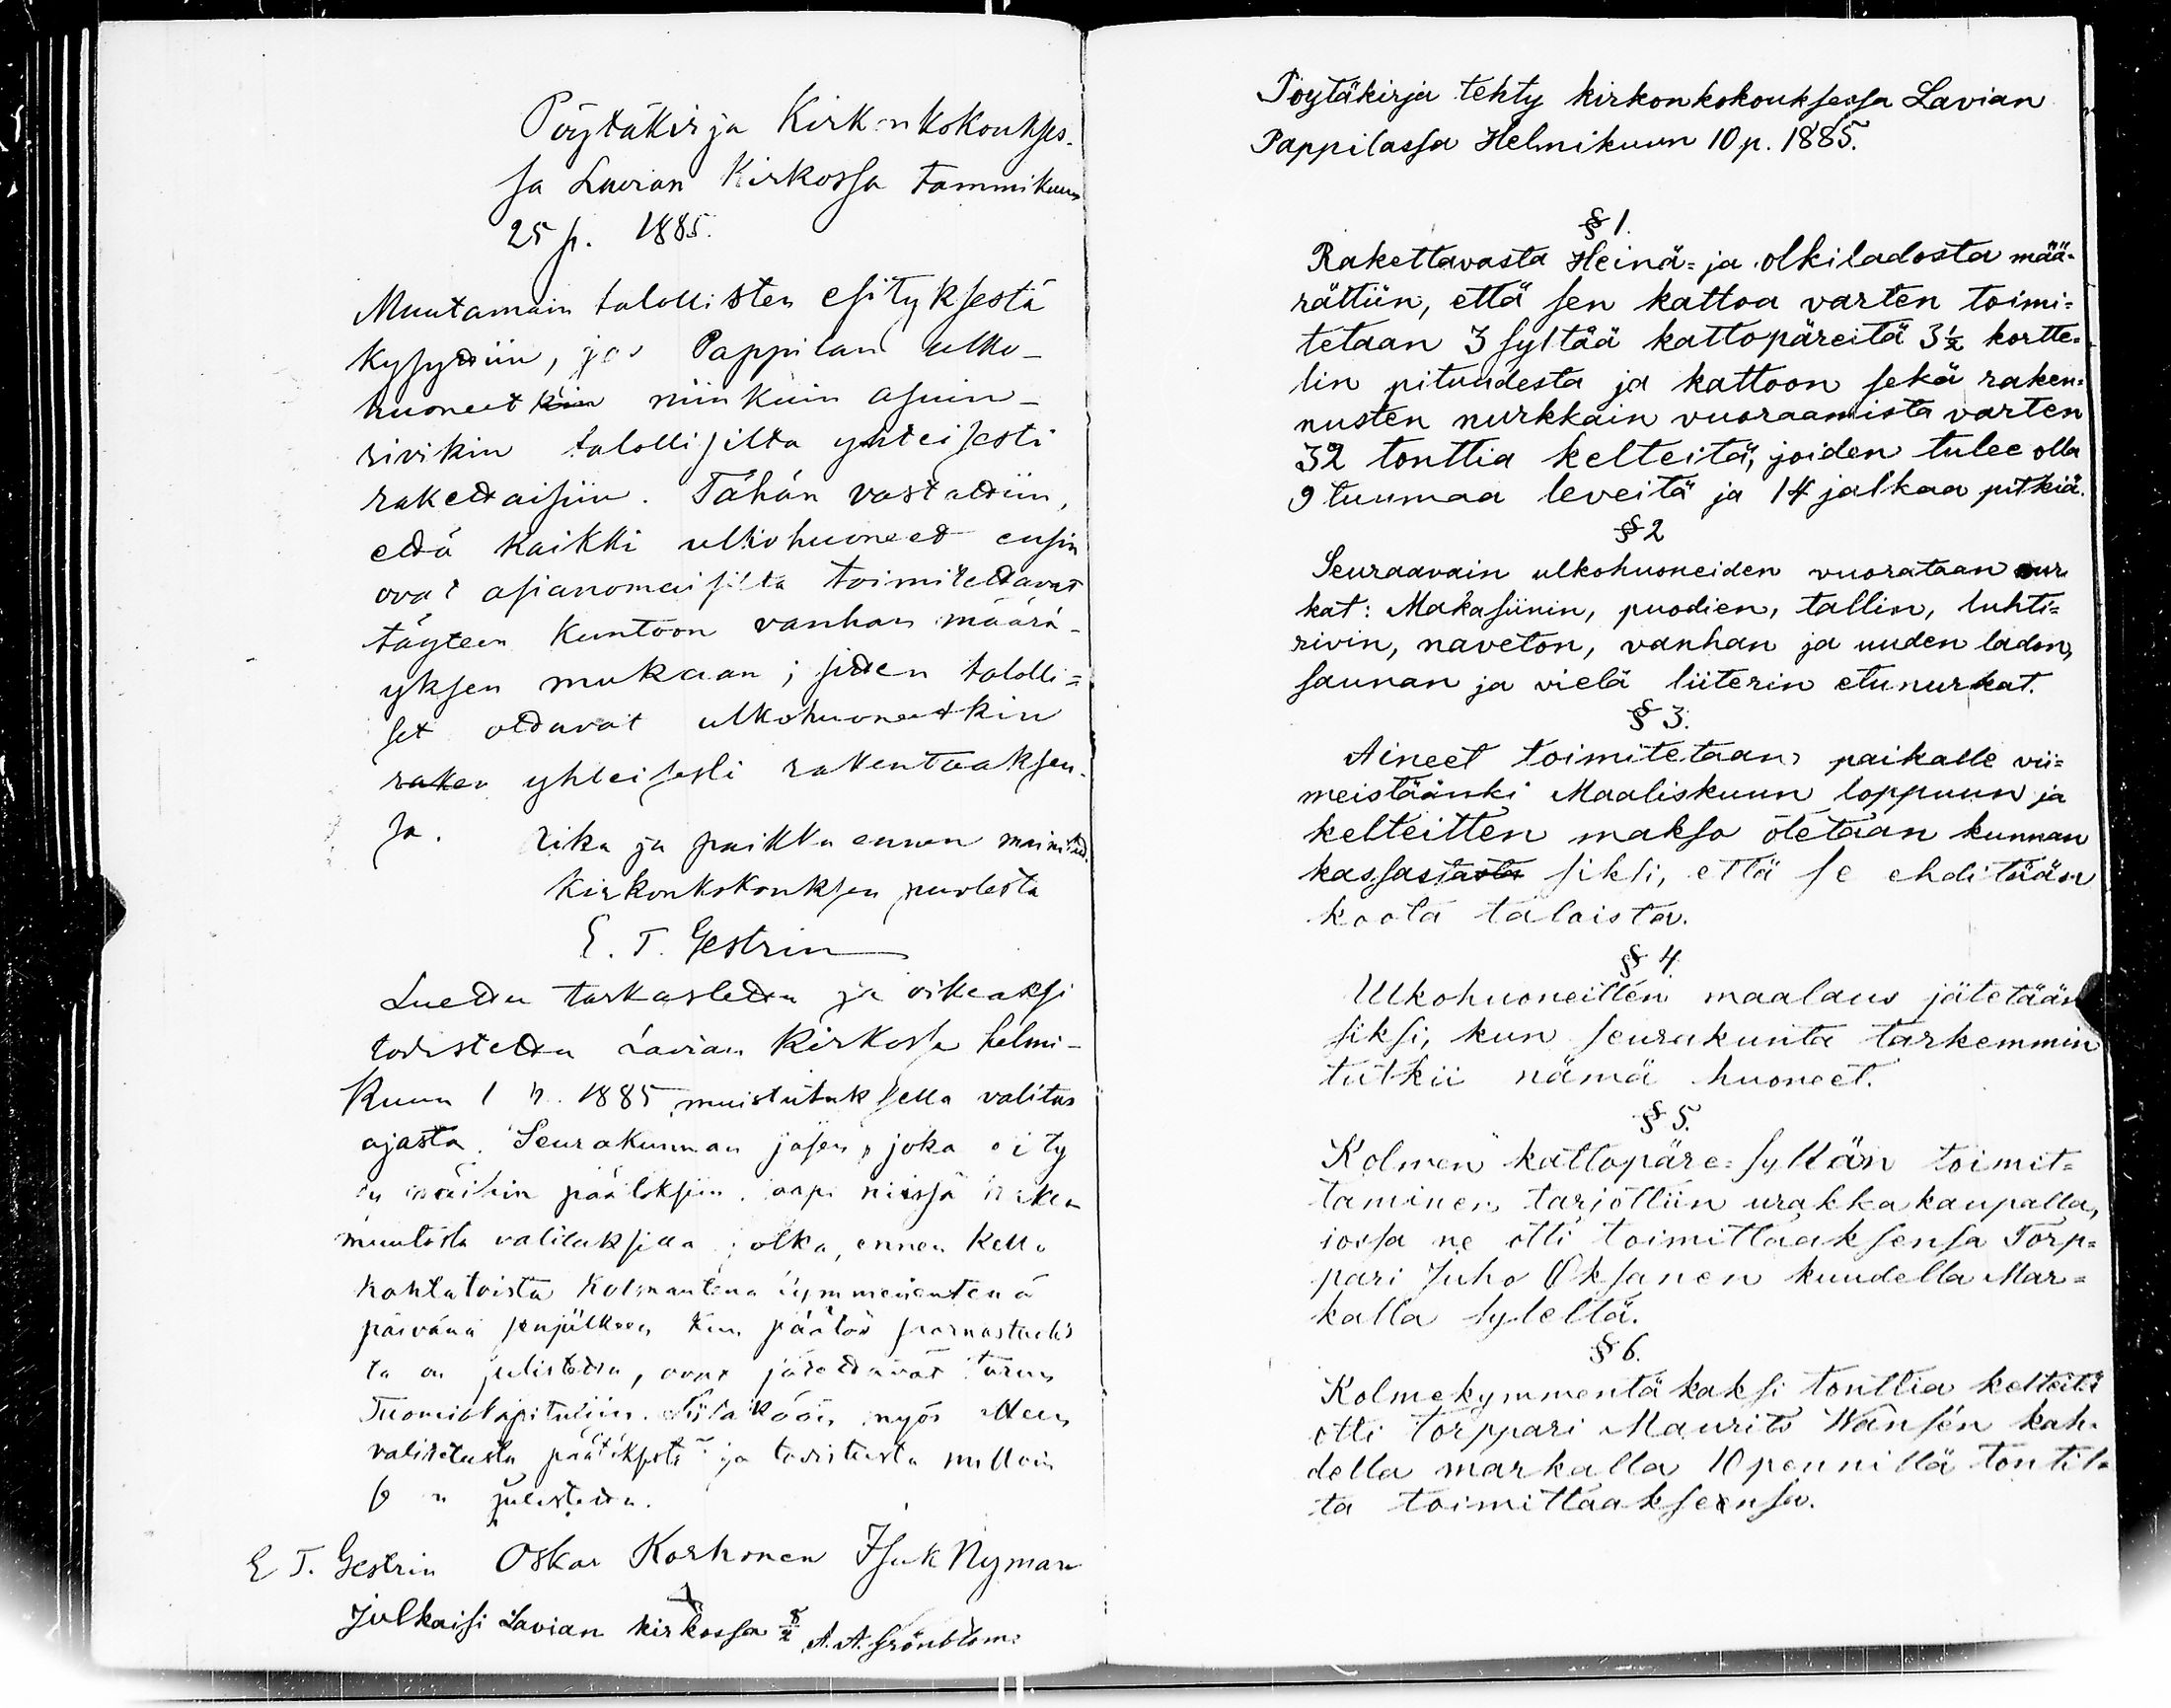 Pöytäkirja Kirkonkokoukses-
sa Lavian Kirkossa tammikuun
25 p. 1885.
Muutamain talollisten esityksestä
kysyttiin, jos Pappilan ulko-
huoneet kuin niinkuin asuin-
rivikin talollisilta yhteisesti
rakettaisiin. Tähän vastattiin,
että kaikki ulkohuoneet ensin
ovat asianomaisilta toimitettavat
täyteen kuntoon vanhan määrä-
yksen mukaan; sitten talolli=
set ottavat ulkohuoneetkin
raken yhteisesti rakentaaksen-
sa. Aika ja paikka ennen mainitut.
Kirkonkokouksen puolesta
E. T. Gestrin
Luettu tarkastettu ja oikeaksi
todistettu Lavian Kirkossa helmi-
kuun 1 p. 1885 muistutuksella valitus
ajasta. Seurakunnan jäsen, joka ei ty
dy näihin päätöksiin, saapi niissä hakea
muutosta valituksilla, jotka, ennen kello
kahtatoista kolmantena kymmenentenä
päivänä senjälkeen kun päätös saarnastuolis
ta on julistettu, ovat jätettävät Turun
Tuomiokapituliin. Liitakoon myös otteen
valitetusta päätöksestä ja todistusta milloin
se on julistettu.
E T. Gestrin Oskar Korhonen Isak Nyman
Julkaisi Lavian kirkossa 8/2 A. A. Grönblom.
Pöytäkirja tehty kirkonkokouksessa Lavian
Pappilassa Helmikuun 10 p. 1885.
§ 1.
Rakettavasta Heinä= ja olkiladosta mää-
rättiin, että sen kattoa varten toimi=
tetaan 3 syltää kattopäreitä 3½ kortte=
lin pituudesta ja kattoon sekä raken=
nusten nurkkain vuoraamista varten
32 tonttia kelteitä, joiden tulee olla
9 tuumaa leveitä ja 14 jalkaa pitkiä.
§ 2
Seuraavain ulkohuoneiden vuorataan nur
kat: Makasiinin, puodien, tallin, luhti=
rivin, naveton, vanhan ja uuden ladon,
saunan ja vielä liiterin etunurkat.
§ 3.
Aineet toimitetaan paikalle vii=
meistäänki Maaliskuun loppuun ja
kelteitten maksa otetaan kunnan
kassastasta siksi, että se ehditään
koota taloista.
§ 4.
Ulkohuoneitten maalaus jätetään
siksi, kun seurakunta tarkemmin
tutkii nämä huoneet.
§ 5.
Kolmen kattopäre=syltän toimit=
taminen tarjottiin urakkakaupalla,
jossa ne otti toimittaaksensa Torp=
pari Juho Oksanen kuudella Mar=
kalla syleltä.
§ 6.
Kolmekymmentäkaksi tonttia kelteitä
otti torppari Maurits Wansén kah-
della markalla 10 pennillä tontil-
ta toimittaaksensa.